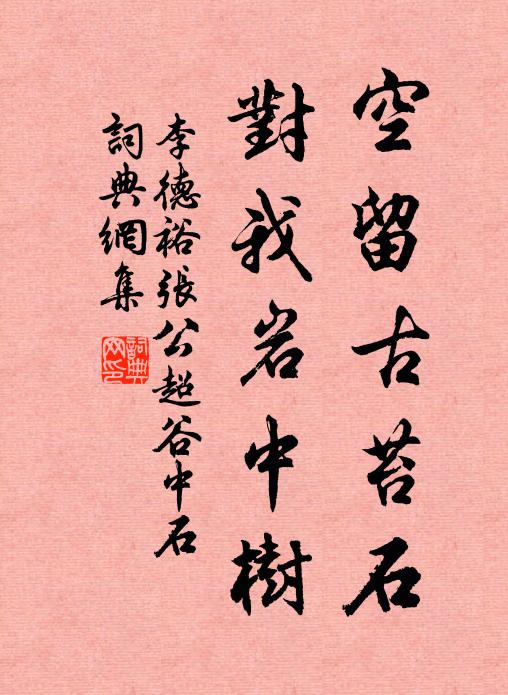 空留古苔石
對我岩中樹
李德裕張公超谷中石
詞典網集
詞典網印